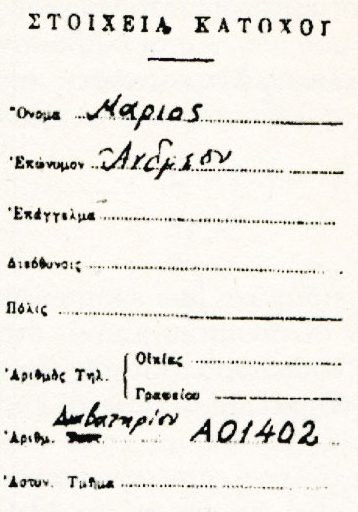 ΣΤΟΙΧΕΙΑ ΚΑΤΟΧΟΥ
Ὄνομα Μάριος
Ἐπώνυμον Ἀνδρέου
Ἐπάγγελμα
Διεύθυνσις
Πόλις
Ἀριθμὸς Τηλ. Οἰκίας
Γραφείου
Διαβατηρίου
Ἀριθμ. Α01402
Ἀστυν. Τμῆμα